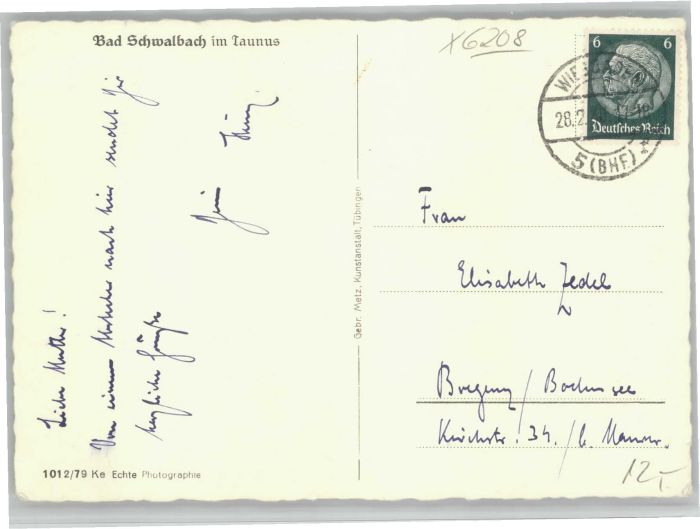 Bad Schwalbach im Taunus
X6208
6 6
Deutsches Reich
WIESBADEN
28.2.
5 (BHF)
Liebe Mutter!
Von einem nach hier sendet Dir
herzliche Grüße
Dein
Frau
Elisabeth Jedel
Bregenz / Bodensee
Kirchstr. 34. / b. Maurer.
Gebr. Metz, Kunstanstalt, Tübingen
1012/79 Ke Echte Photographie
12,-